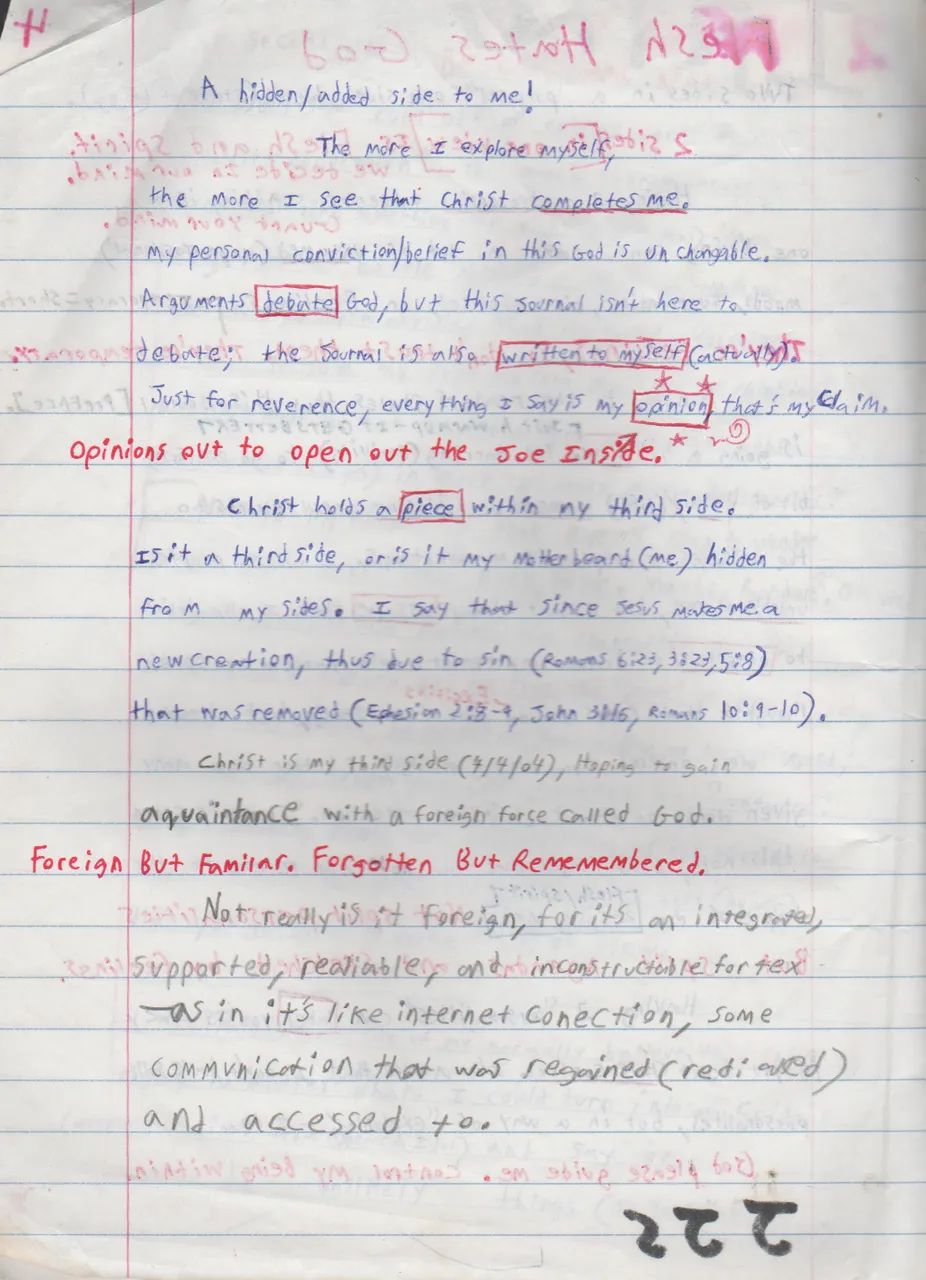 4
A hidden/added side to me!
The more I explore myself,
the more I see that Christ completes me.
My personal conviction/belief in this God is un changable.
Arguments debate God, but this Journal isn't here to
debate; the Journal is also written to myself (actually).
Just for reverence, everything I say is my opinion, that's my Claim.
Opinions out to open out the Joe Inside.
Christ holds a piece within my third side.
Is it a third side, or is it my Motherboard (me) hidden
from my sides. I say that since Jesus makes me a
new creation, thus due to sin (Romans 6:23, 3:23, 5:8)
that was removed (Ephesian 2:8-9, John 3:16, Romans 10:9-10).
Christ is my third side (4/4/04), Hoping to gain
aquaintance with a foreign force called God.
Foreign But Familar. Forgotten But Rememembered.
Not really is it foreign, for its an integrated,
supported, realiable, and inconstructable fortex
—as in it's like internet conection, some
communication that was regained (redi
and accessed to.